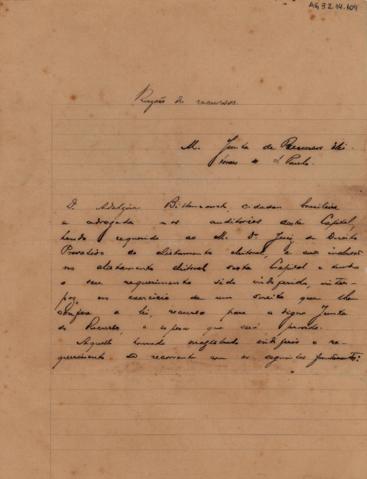 AG 32.14.104
Razões de recurso
M. Junta de Recursos Elei
toraes de S. Paulo.
D. Adalzira Bittencourt cidadan brasileira
e advogada nos auditorios desta Capital,
tendo requerido ao M. Dr. Juiz de Direito
do alistamento eleitoral, a sua inclusão
no alistamento eleitoral desta Capital e tendo
o seu requerimento sido indeferido, inter-
poz, no exercicio de um direito que lhe
a lei, recurso para a digna Junta
de Recursos, e espera que será provido.
Aquelle magistrado indeferiu o re-
querimento da recorrente com os seguintes fundamentos: